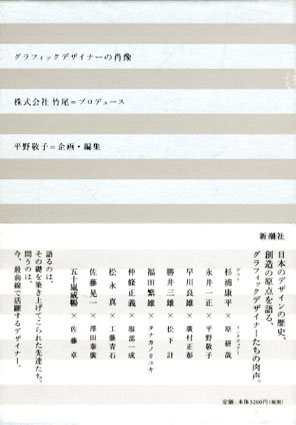 グラフィックデザイナーの肖像
株式会社 竹尾＝プロデュース
平野敬子＝企画・編集
新潮社
日本のデザインの歴史、
創造の原点を語る、
グラフィックデザイナーたちの肉声。
杉浦康平 × 原 研哉
永井一正 × 平野敬子
早川良雄 × 廣村正彰
勝井三雄 × 松下 計
福田繁雄 × タナカノリユキ
仲條正義 × 服部一成
松永 真 × 工藤青石
佐藤晃一 × 澤田泰廣
五十嵐威暢 × 佐藤 卓
語るのは、
その礎を築き上げてこられた先達たち。
問うのは、
今、最前線で活躍するデザイナー。
定価：本体3200円（税別）